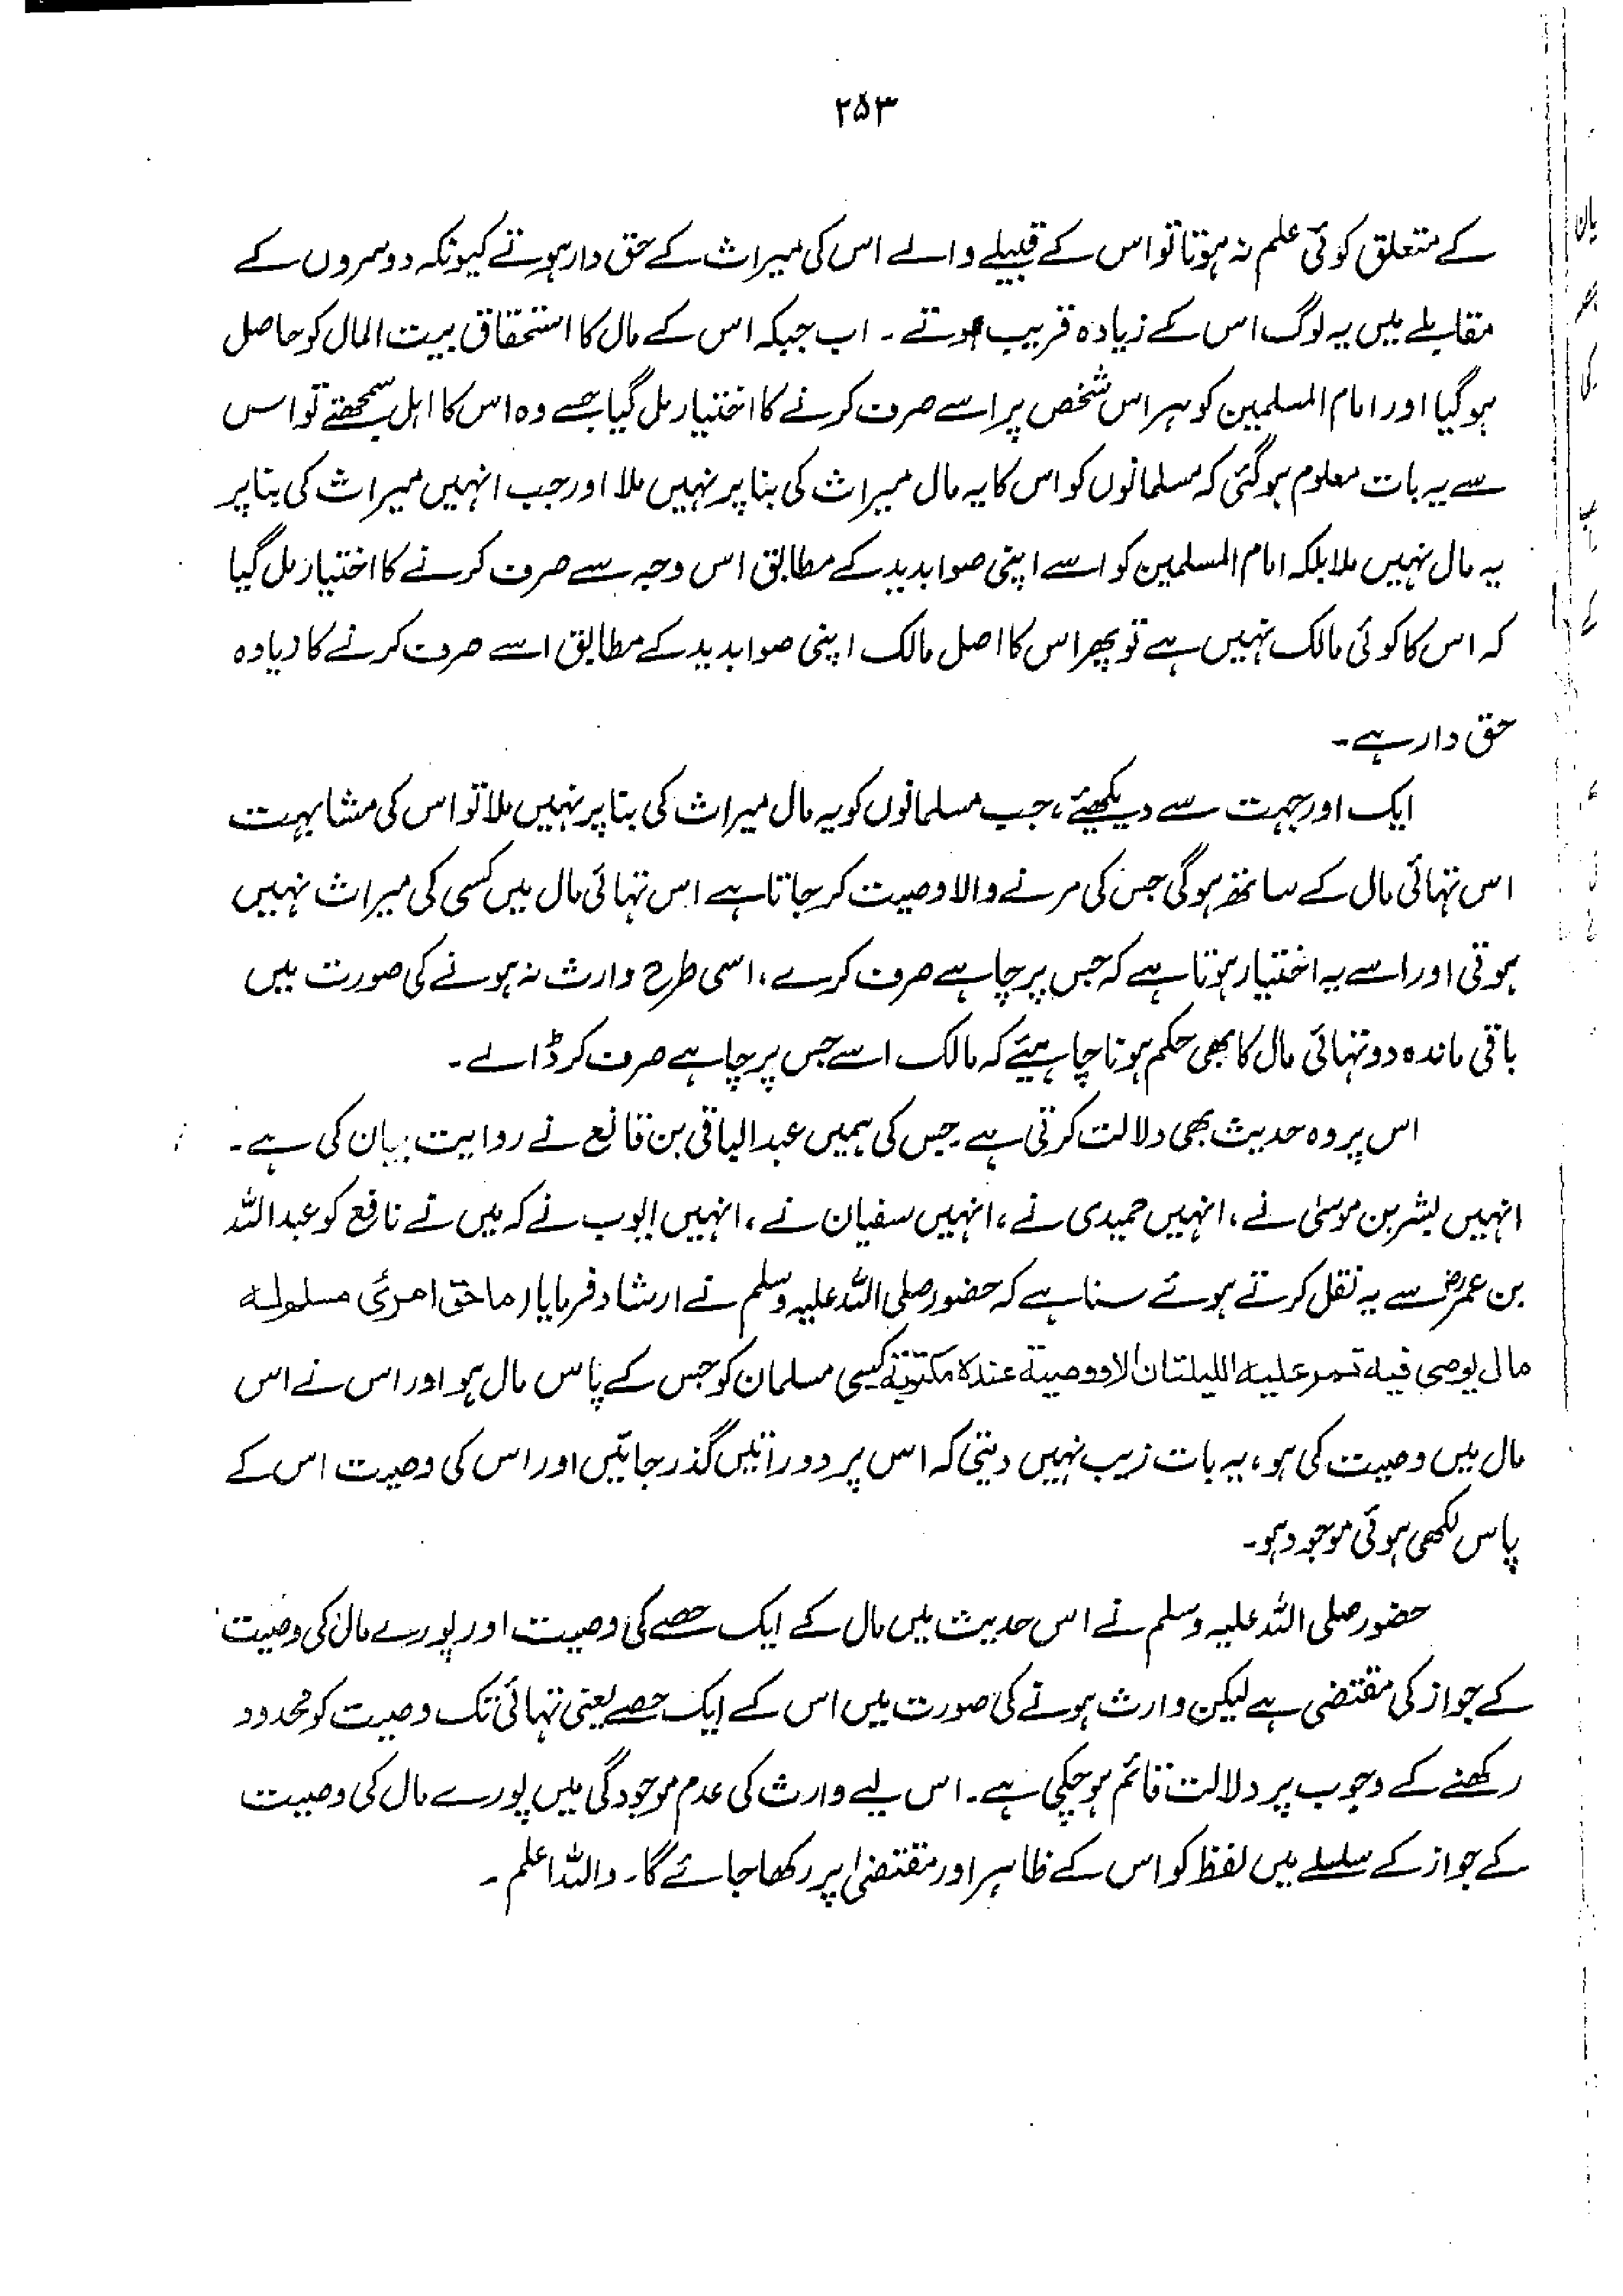 ۲۵۳
کے متعلق کوئی علم نہ ہوتا تو اس کے قبیلے والے اس کی میراث کے حق دار ہوتے کیونکہ دوسروں کے
مقابلے میں یہ لوگ اس کے زیادہ قریب ہوتے ۔ اب جبکہ اس کے مال کا استحقاق بیت المال کو حاصل
ہو گیا اور امام المسلمین کو ہر اس شخص پر اسے صرف کرنے کا اختیار مل گیا جسے وہ اس کا اہل سمجھتے تو اس
سے یہ بات معلوم ہو گئی کہ مسلمانوں کو اس کا یہ مال میراث کی بنا پر نہیں ملا اور جب انہیں میراث کی بنا پر
یہ مال نہیں ملا بلکہ امام المسلمین کو اسے اپنی صوابدید کے مطابق اس وجہ سے صرف کرنے کا اختیار مل گیا
کہ اس کا کوئی مالک نہیں ہے تو پھر اس کا اصل مالک اپنی صوابدید کے مطابق اسے صرف کرنے کا زیادہ
حق دار ہے۔
ایک اور جہت سے دیکھیئے، جب مسلمانوں کو یہ مال میراث کی بنا پر نہیں ملا تو اس کی مشابہت
اس تہائی مال کے ساتھ ہو گی جس کی مرنے والا وصیت کر جاتا ہے اس تہائی مال میں کسی کی میراث نہیں
ہوتی اور اسے یہ اختیار ہوتا ہے کہ جس پر چاہے صرف کرے، اسی طرح وارث نہ ہونے کی صورت میں
باقی ماندہ دو تہائی مال کا بھی حکم ہونا چاہیئے کہ مالک اسے جس پر چاہے صرف کر ڈالے ۔
اس پر وہ حدیث بھی دلالت کرتی ہے جس کی ہمیں عبد الباقی بن قانع نے روایت بیان کی ہے ۔
انہیں بشر بن موسیٰ نے، انہیں حمیدی نے، انہیں سفیان نے، انہیں ایوب نے کہ میں نے نافع کو عبد اللہ
بن عمرؓ سے یہ نقل کرتے ہوئے سنا ہے کہ حضور صلی اللہ علیہ وسلم نے ارشاد فرمایا (ما حق امرئ مسلم لہ
مال یوصی فیہ تمر علیہ اللیلتان الا ووصیتہ عندہ مکتوبۃ کسی مسلمان کو جس کے پاس مال ہو اور اس نے اس
مال میں وصیت کی ہو، یہ بات زیب نہیں دیتی کہ اس پر دو راتیں گذر جائیں اور اس کی وصیت اس کے
پاس لکھی ہوئی موجود ہو۔
حضور صلی اللہ علیہ وسلم نے اس حدیث میں مال کے ایک حصے کی وصیت اور پورے مال کی وصیت
کے جواز کی مقتضی ہے لیکن وارث ہونے کی صورت میں اس کے ایک حصے یعنی تہائی تک وصیت کو محدود
رکھنے کے وجوب پر دلالت قائم ہو چکی ہے ۔ اس لیے وارث کی عدم موجودگی میں پورے مال کی وصیت
کے جواز کے سلسلے میں لفظ کو اس کے ظاہر اور مقتضیٰ پر رکھا جائے گا ۔ واللہ اعلم ۔